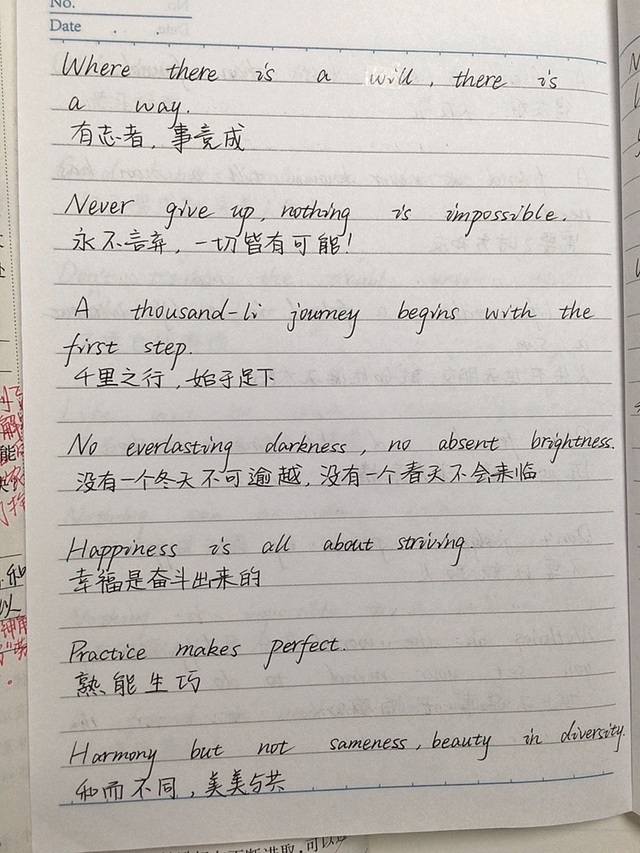 No.
Date
Where there is a will, there is
a way.
有志者，事竟成
Never give up, nothing is impossible.
永不言弃，一切皆有可能！
A thousand-li journey begins with the
first step.
千里之行，始于足下
No everlasting darkness, no absent brightness.
没有一个冬天不可逾越，没有一个春天不会来临
Happiness is all about striving.
幸福是奋斗出来的
Practice makes perfect.
熟能生巧
Harmony but not sameness, beauty in diversity.
和而不同，美美与共